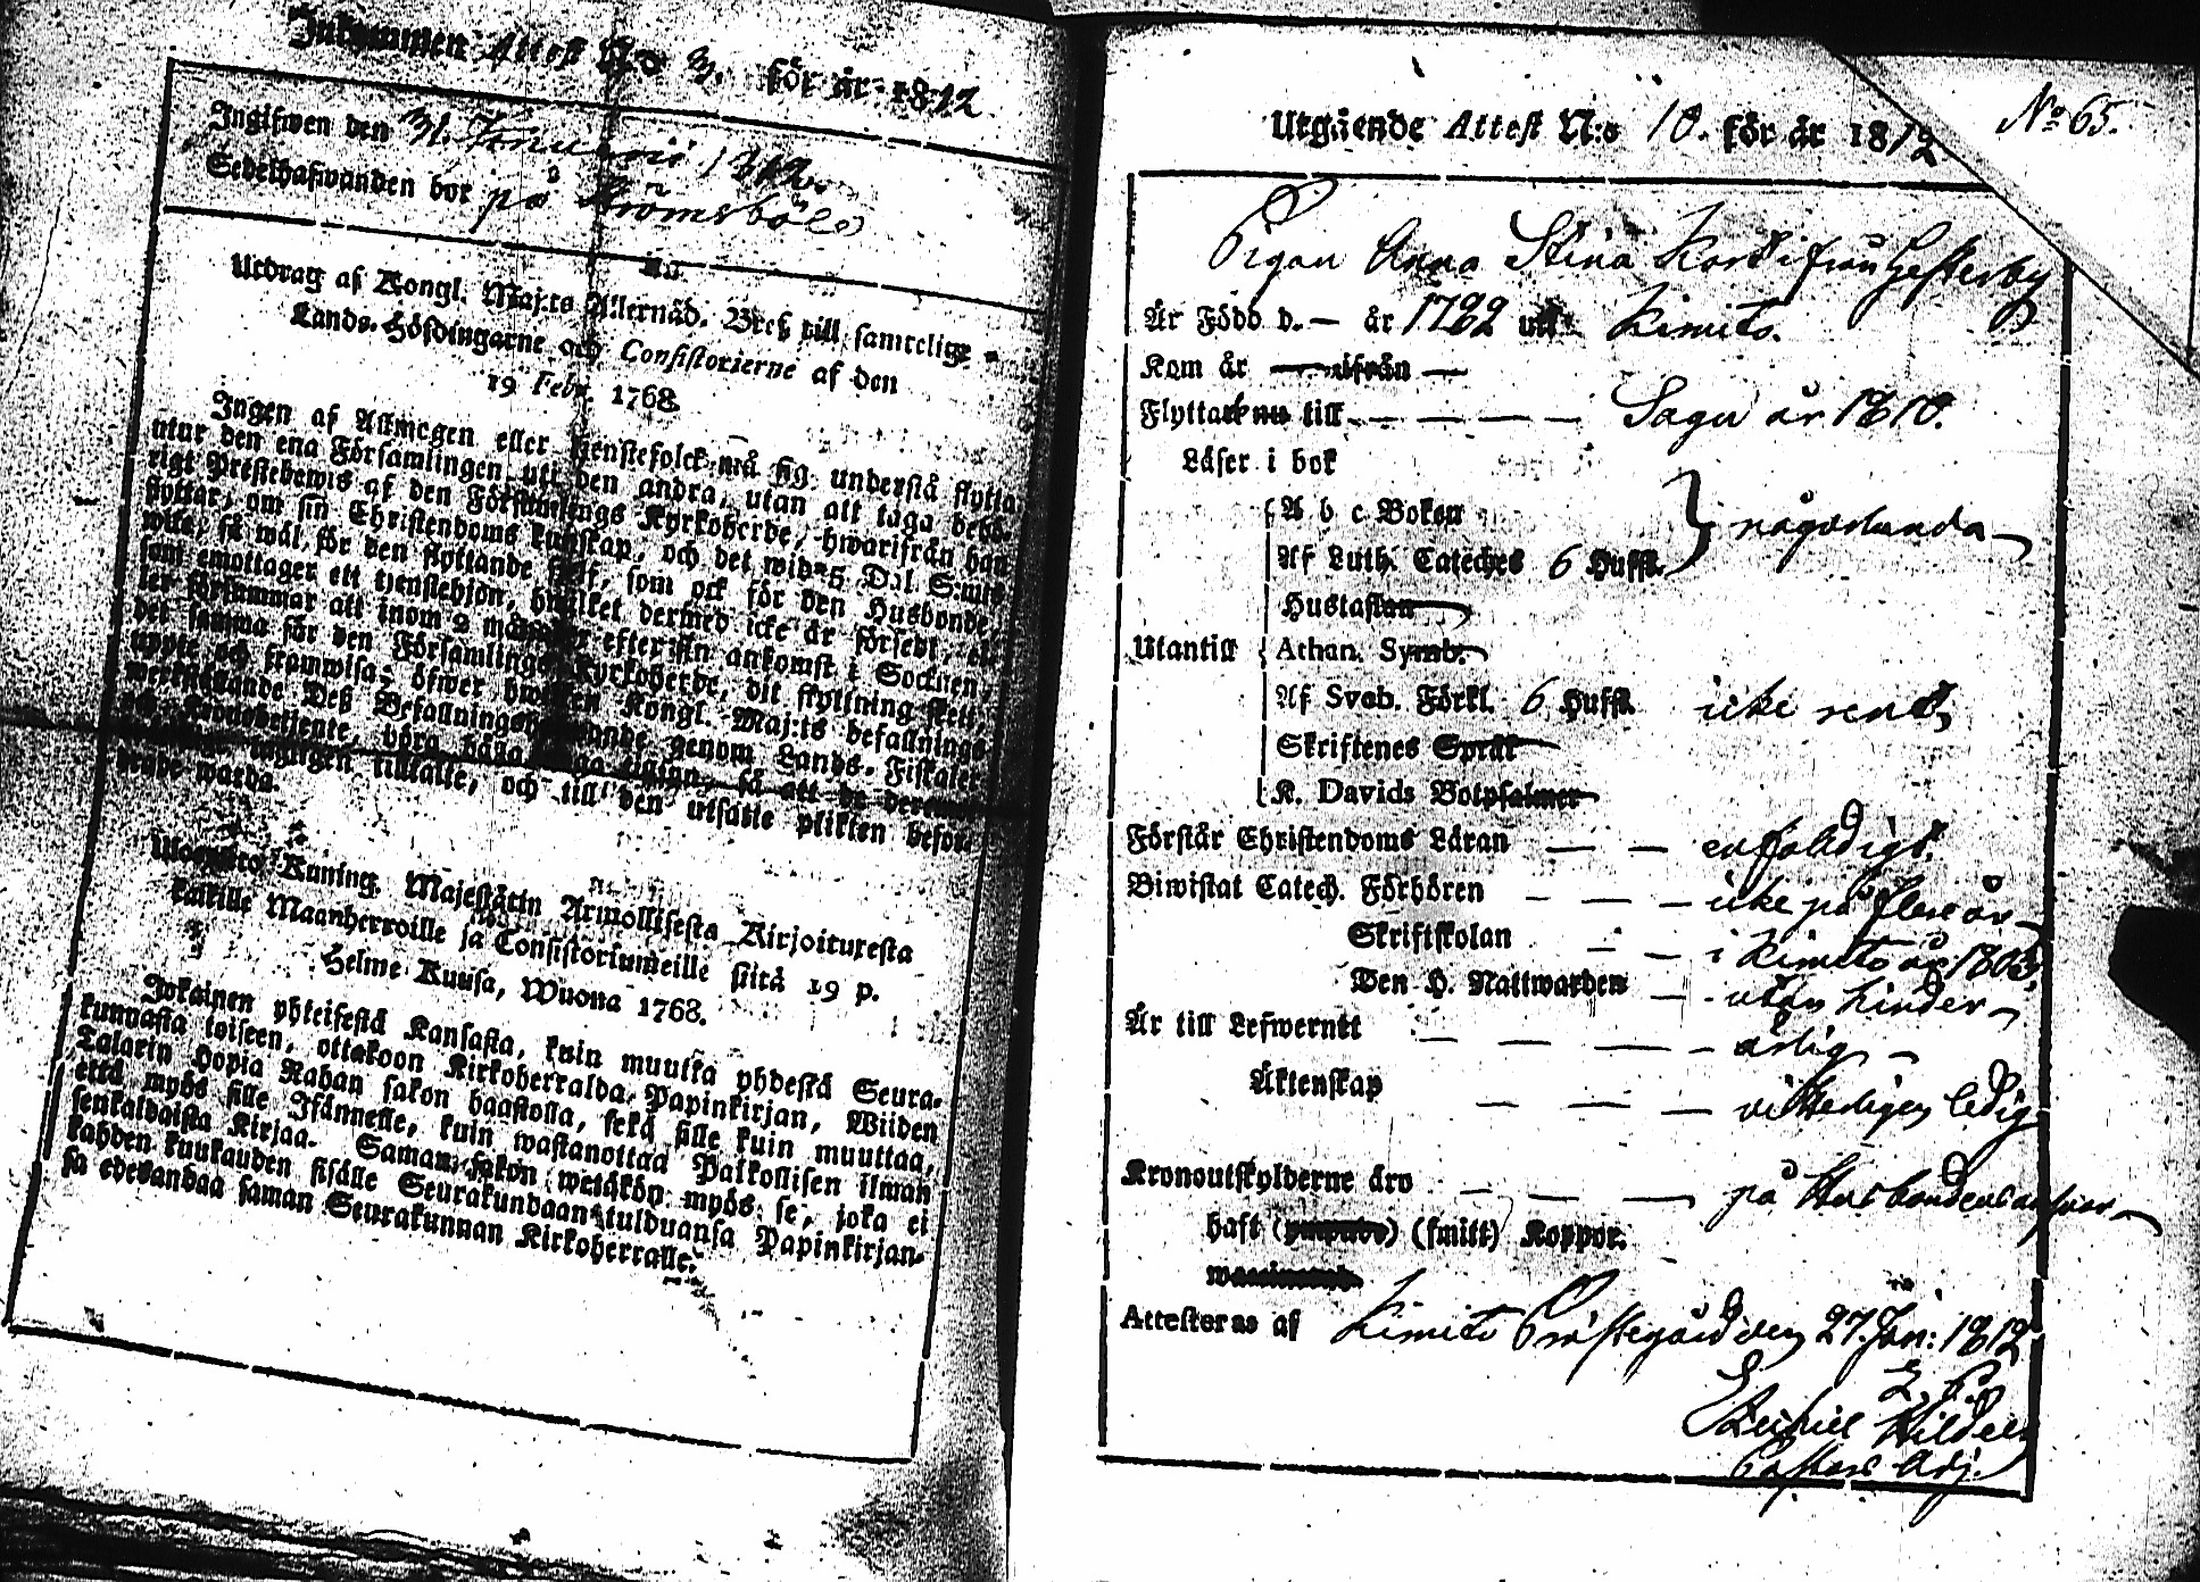 Inkommen Attest N:o 3. för år 1812
Ingifwen den 31. Januarii 1812.
Sedelhafwanden bor på Strömsböle
Utdrag af Kongl. Maj:ts Allernåd. Bref till samtelige
Lands-Höfdingarne och Consistorierne af den
19 Febr. 1768.
Ingen af Allmogen eller tjenstefolck må sig understå flytta
utur den ena Församlingen uti den andra, utan att taga behö-
rigt Prestebewis af den Församlings Kyrkoherde, hwarifrån han
flyttar, om sin Christendoms kunskap, och det wid 5 Dal. S:mts
wite, så wäl för den flyttande sjelf, som ock för den Husbonde,
som emottager ett tjenstehjon, hwilket dermed icke är försedt, el-
ler försummar att inom 2 månader efter sin ankomst i Socknen,
det samma för den Församlings Kyrkoherde, dit flyttning skett,
uppte och framwisa; öfwer hwilken Kongl. Maj:ts befallnings
werkställande Deß Befallningshafwande genom Lands-Fiskaler
och Kronobetjente, böra hålla noga ögon, så att de deremot
tilltalte, och till den utsatte plikten befor-
drade warda.
Ulosweto Kuning. Majestätin Armollisesta Kirjoituxesta
kaikille Maanherroille ja Consistoriumeille siitä 19 p.
Helme-Kuusa, Wuona 1768.
Jokainen yhteisestä Kansasta, kuin muutta yhdestä Seura-
kunnasta toiseen, ottakoon Kirkoherralda Papinkirjan, Wiiden
Talarin Hopia Rahan sakon haastolla, sekä sille kuin muuttaa,
että myös sille Isännelle, kuin wastanottaa Palkollisen ilman
senkaldaista Kirjaa. Saman sakon wetäkön myös se, joka ei
kahden kuukauden sisälle Seurakundaan tulduansa Papinkirjan-
sa edesandaa saman Seurakunnan Kirkoherralle.
No 65.
Utgående Attest N:o 10. för år 1812
Pigan Anna Stina ifrån Gesterby
Är Född d. — år 1782 uti Kimito.
Kom år — ifrån —
Flyttar nu till — — — — Sagu år 1810.
Läser i bok
A b c Boken
Af Luth. Cateches 6 Hufst. } någorlunda
Hustaflan
Utantill { Athan. Symb.
Af Sveb. Förkl. 6 Hufst. icke rent
Skriftenes Språk
K. Davids Botpsalmer
Förstår Christendoms Läran — — enfaldigt.
Biwistat Catech. Förhören — — — icke på flere år
Skriftskolan — — i Kimito år 1803,
Den H. Nattwarden — — utan hinder
Är till Lefwernet — — — — ärlig
Äktenskap — — — witterligen ledig
Kronoutskylderne äro — — — på Husbondens answar
haft (ympade) (smitt) Koppor.
Attesteras af Kimito Prästegård den 27. Jan: 1812
Pastors Adj.